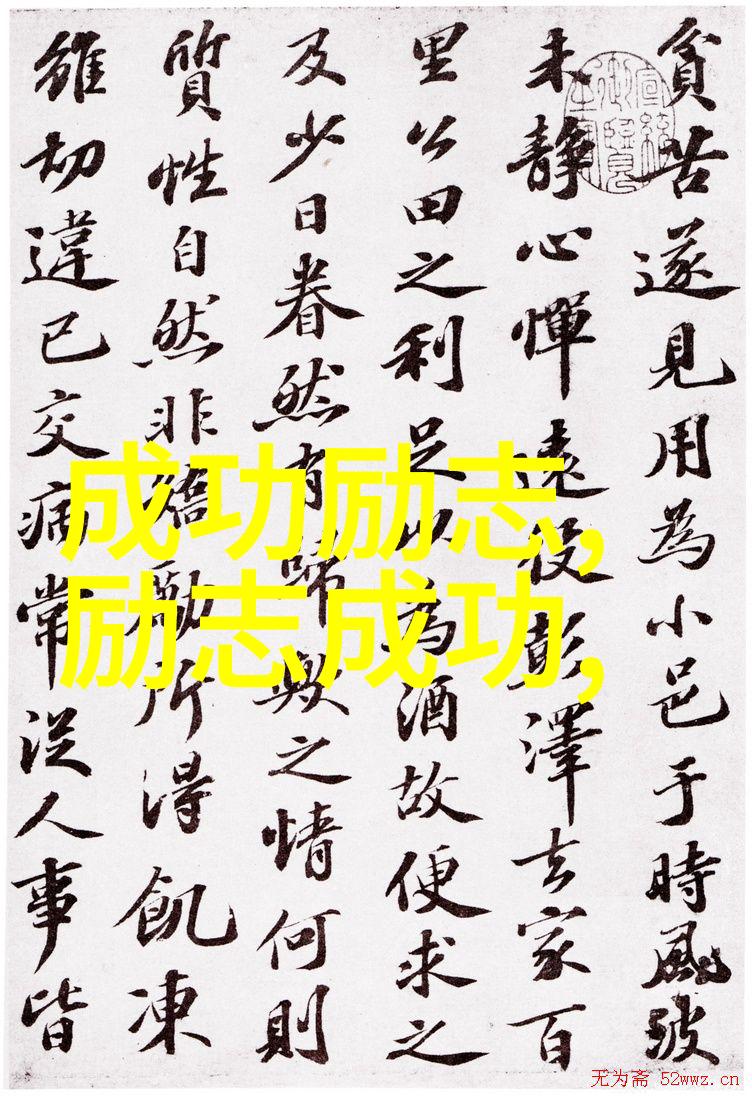 貧苦遂見用為小邑于時風波
未静心憚遠役彭澤去家百
里公田之利足以為酒故便求之
及少日眷然有歸歟之情何則
質性自然非矯勵所得飢凍
雖切違己交病常從人事皆
成功励志,
励志成功,
无为斋 52wwz.cn